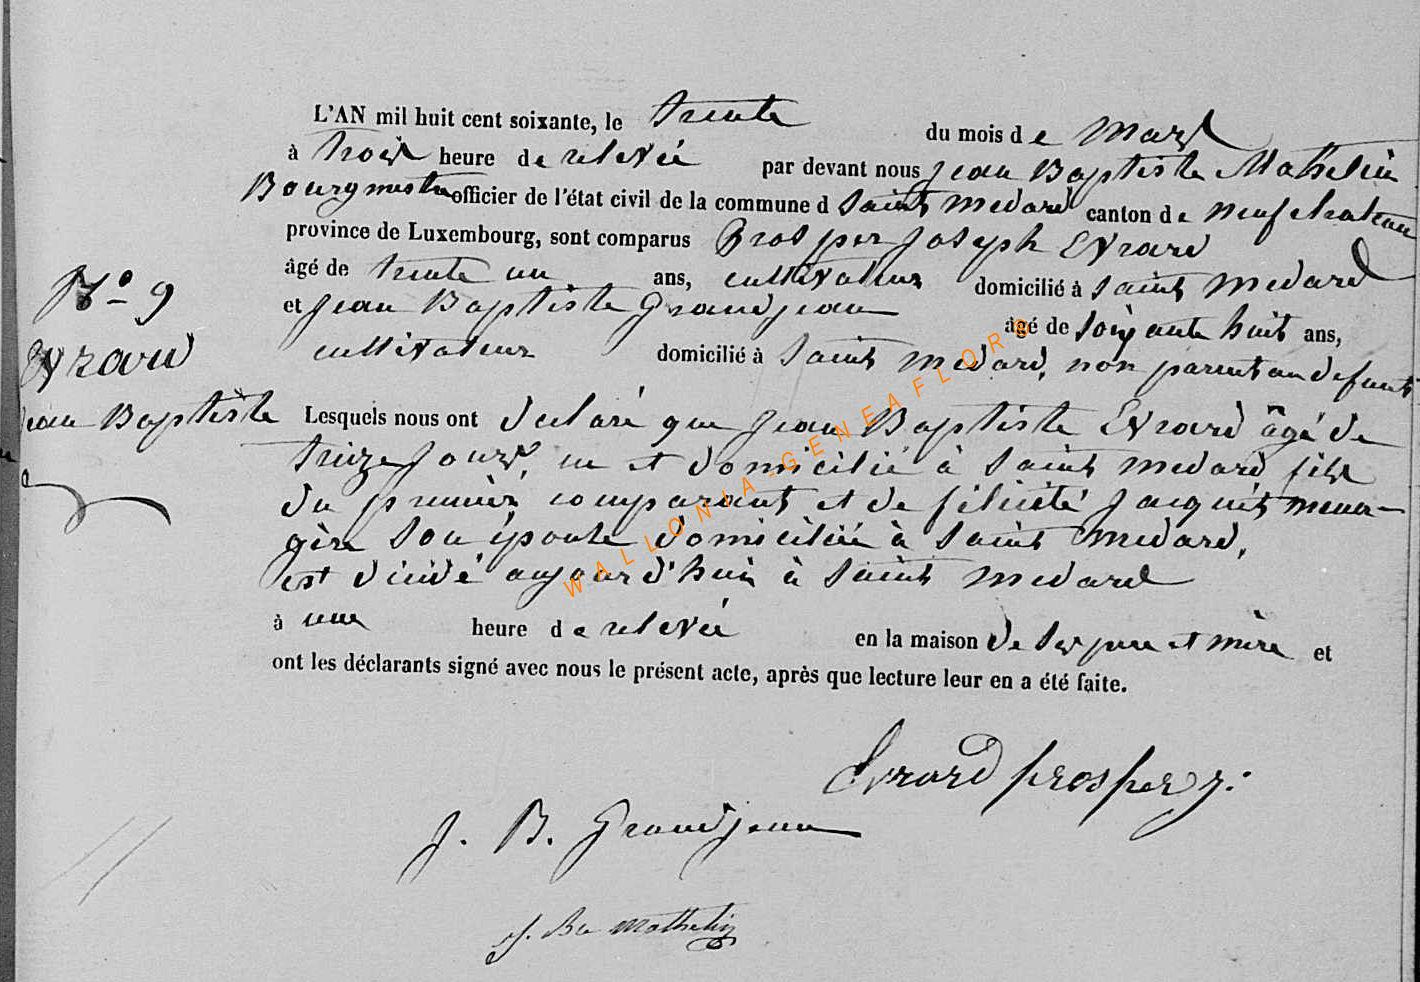 L'AN mil huit cent soixante, le trente du mois de Mars
à trois heure de relevée par devant nous Jean Baptiste Mathelin
Bourgmestre officier de l'état civil de la commune d Saint Medard canton de neufchateau
province de Luxembourg, sont comparus Prosper Joseph Evrard
âgé de trente un ans, cultivateur domicilié à Saint Medard
et Jean Baptiste Grandjean âgé de soixante huit ans,
cultivateur domicilié à Saint Medard, non parent au defunt
N° 9
Evrard
Jean Baptiste
Lesquels nous ont declaré que Jean Baptiste Evrard âgé de
treize jours, né et domicilié à Saint Medard fils
du premier comparant et de felicité Jacquet mena-
gère son épouse domiciliée à Saint Medard,
est décédé aujourd'hui à Saint Medard
à une heure de relevée en la maison de ses père et mère et
ont les déclarants signé avec nous le présent acte, après que lecture leur en a été faite.
Evrard prosper j.
J. B. Grandjean
J. Bte Mathelin
WALLONIA-GENEAFLOR©